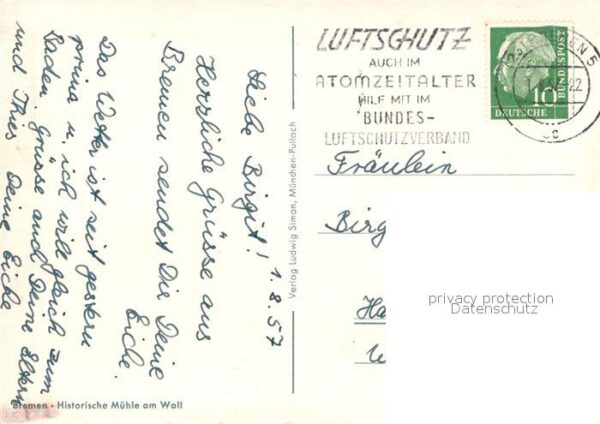 Liebe Birgit! 1.8.57
Herzliche Grüsse aus
Bremen sendet Dir Deine
Eicke.
Das Wetter ist seit gestern
prima u. ich will gleich zum
Baden. Grüsse auch Deine Eltern
und Thies Deine Eicke
Bremen · Historische Mühle am Wall
Verlag Ludwig Simon, München-Pullach
LUFTSCHUTZ
AUCH IM
ATOMZEITALTER
HILF MIT IM
BUNDES-
LUFTSCHUTZVERBAND
DEUTSCHE
BUNDESPOST
10
Fräulein
Birg
Ha
privacy protection
Datenschutz